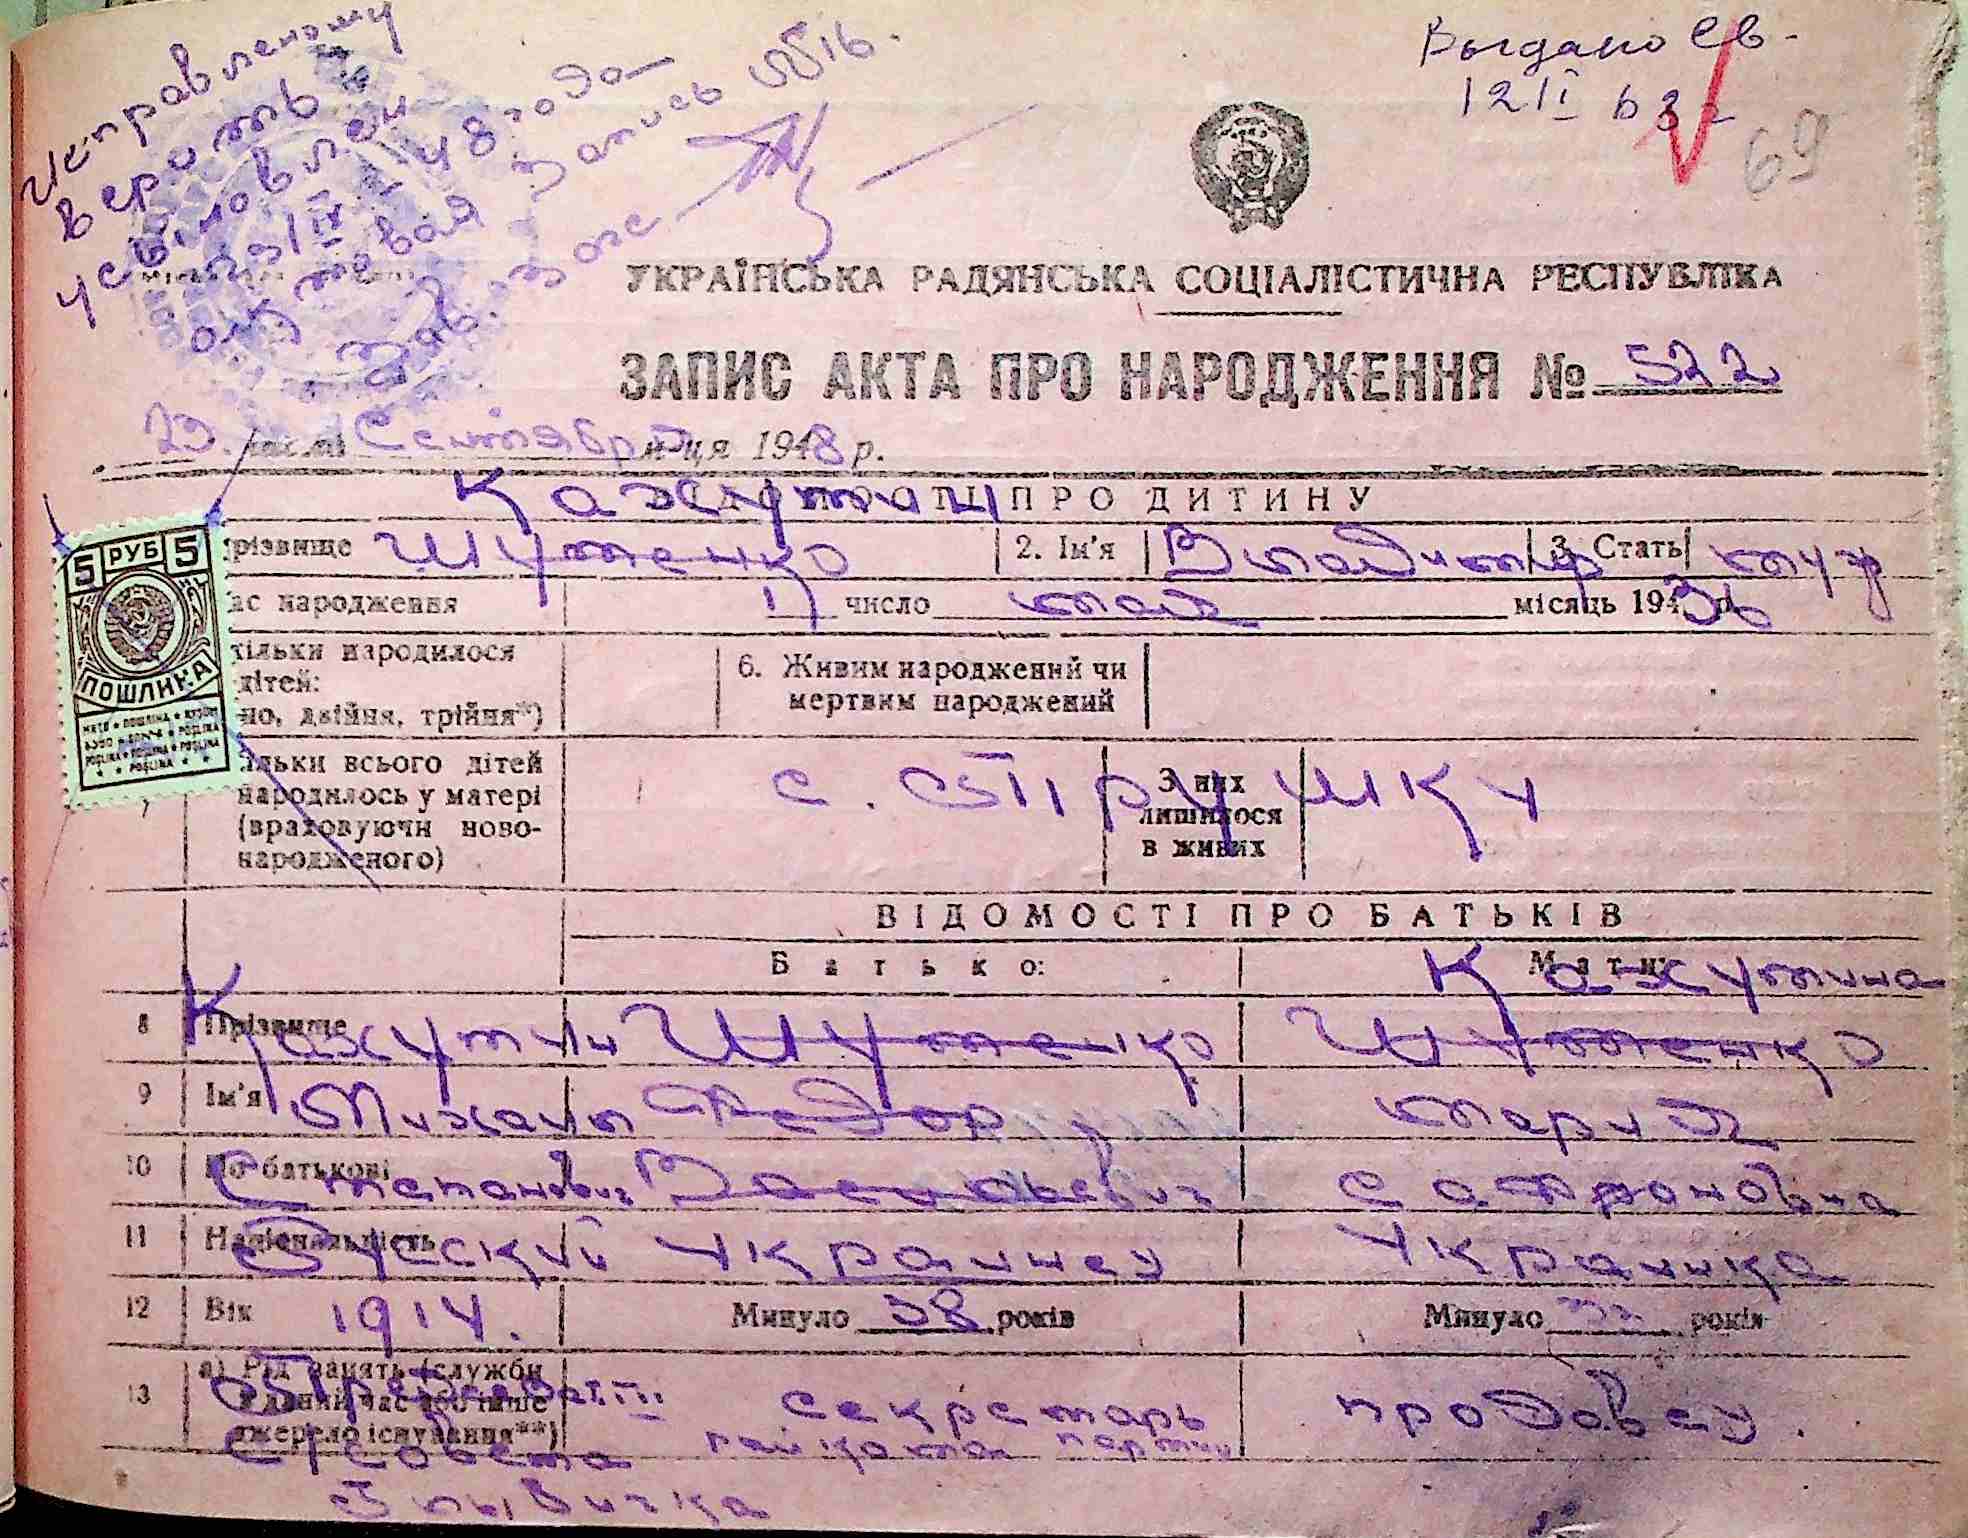 Исправленому
верить
усыновлен
48 года
запись
Выдано св-
12 II 63г
69
УКРАЇНСЬКА РАДЯНСЬКА СОЦІАЛІСТИЧНА РЕСПУБЛІКА
ЗАПИС АКТА ПРО НАРОДЖЕННЯ № 522
23. Сентября м-ця 1948 р.
Кажутин ПРО ДИТИНУ
5 РУБ 5
ПОШЛИНА
різвище Шутенко 2. Ім'я Владимир 3. Стать муж
ас народження 17 число мая місяць 194
ільки народилося
дітей:
но, двійня, трійня*)
6. Живим народжений чи
мертвим народжений
льки всього дітей
народилось у матері
(враховуючи ново-
народженого)
З них
лишилося
в живих
ВІДОМОСТІ ПРО БАТЬКІВ
Батько: Мати:
Кажутина
8 Прізвище Кажутин Шутенко Шутенко
9 Ім'я Михаил Федор Мария
10 По батькові Степанович Васильевич Сафроновна
11 Національність Русский Украинец Украинка
12 Вік 1914. Минуло 38 років Минуло років
13 а) Рід занять (служби
в даний час або інше
джерело існування**)
секретарь
райкома партии
продавец.
с/совета